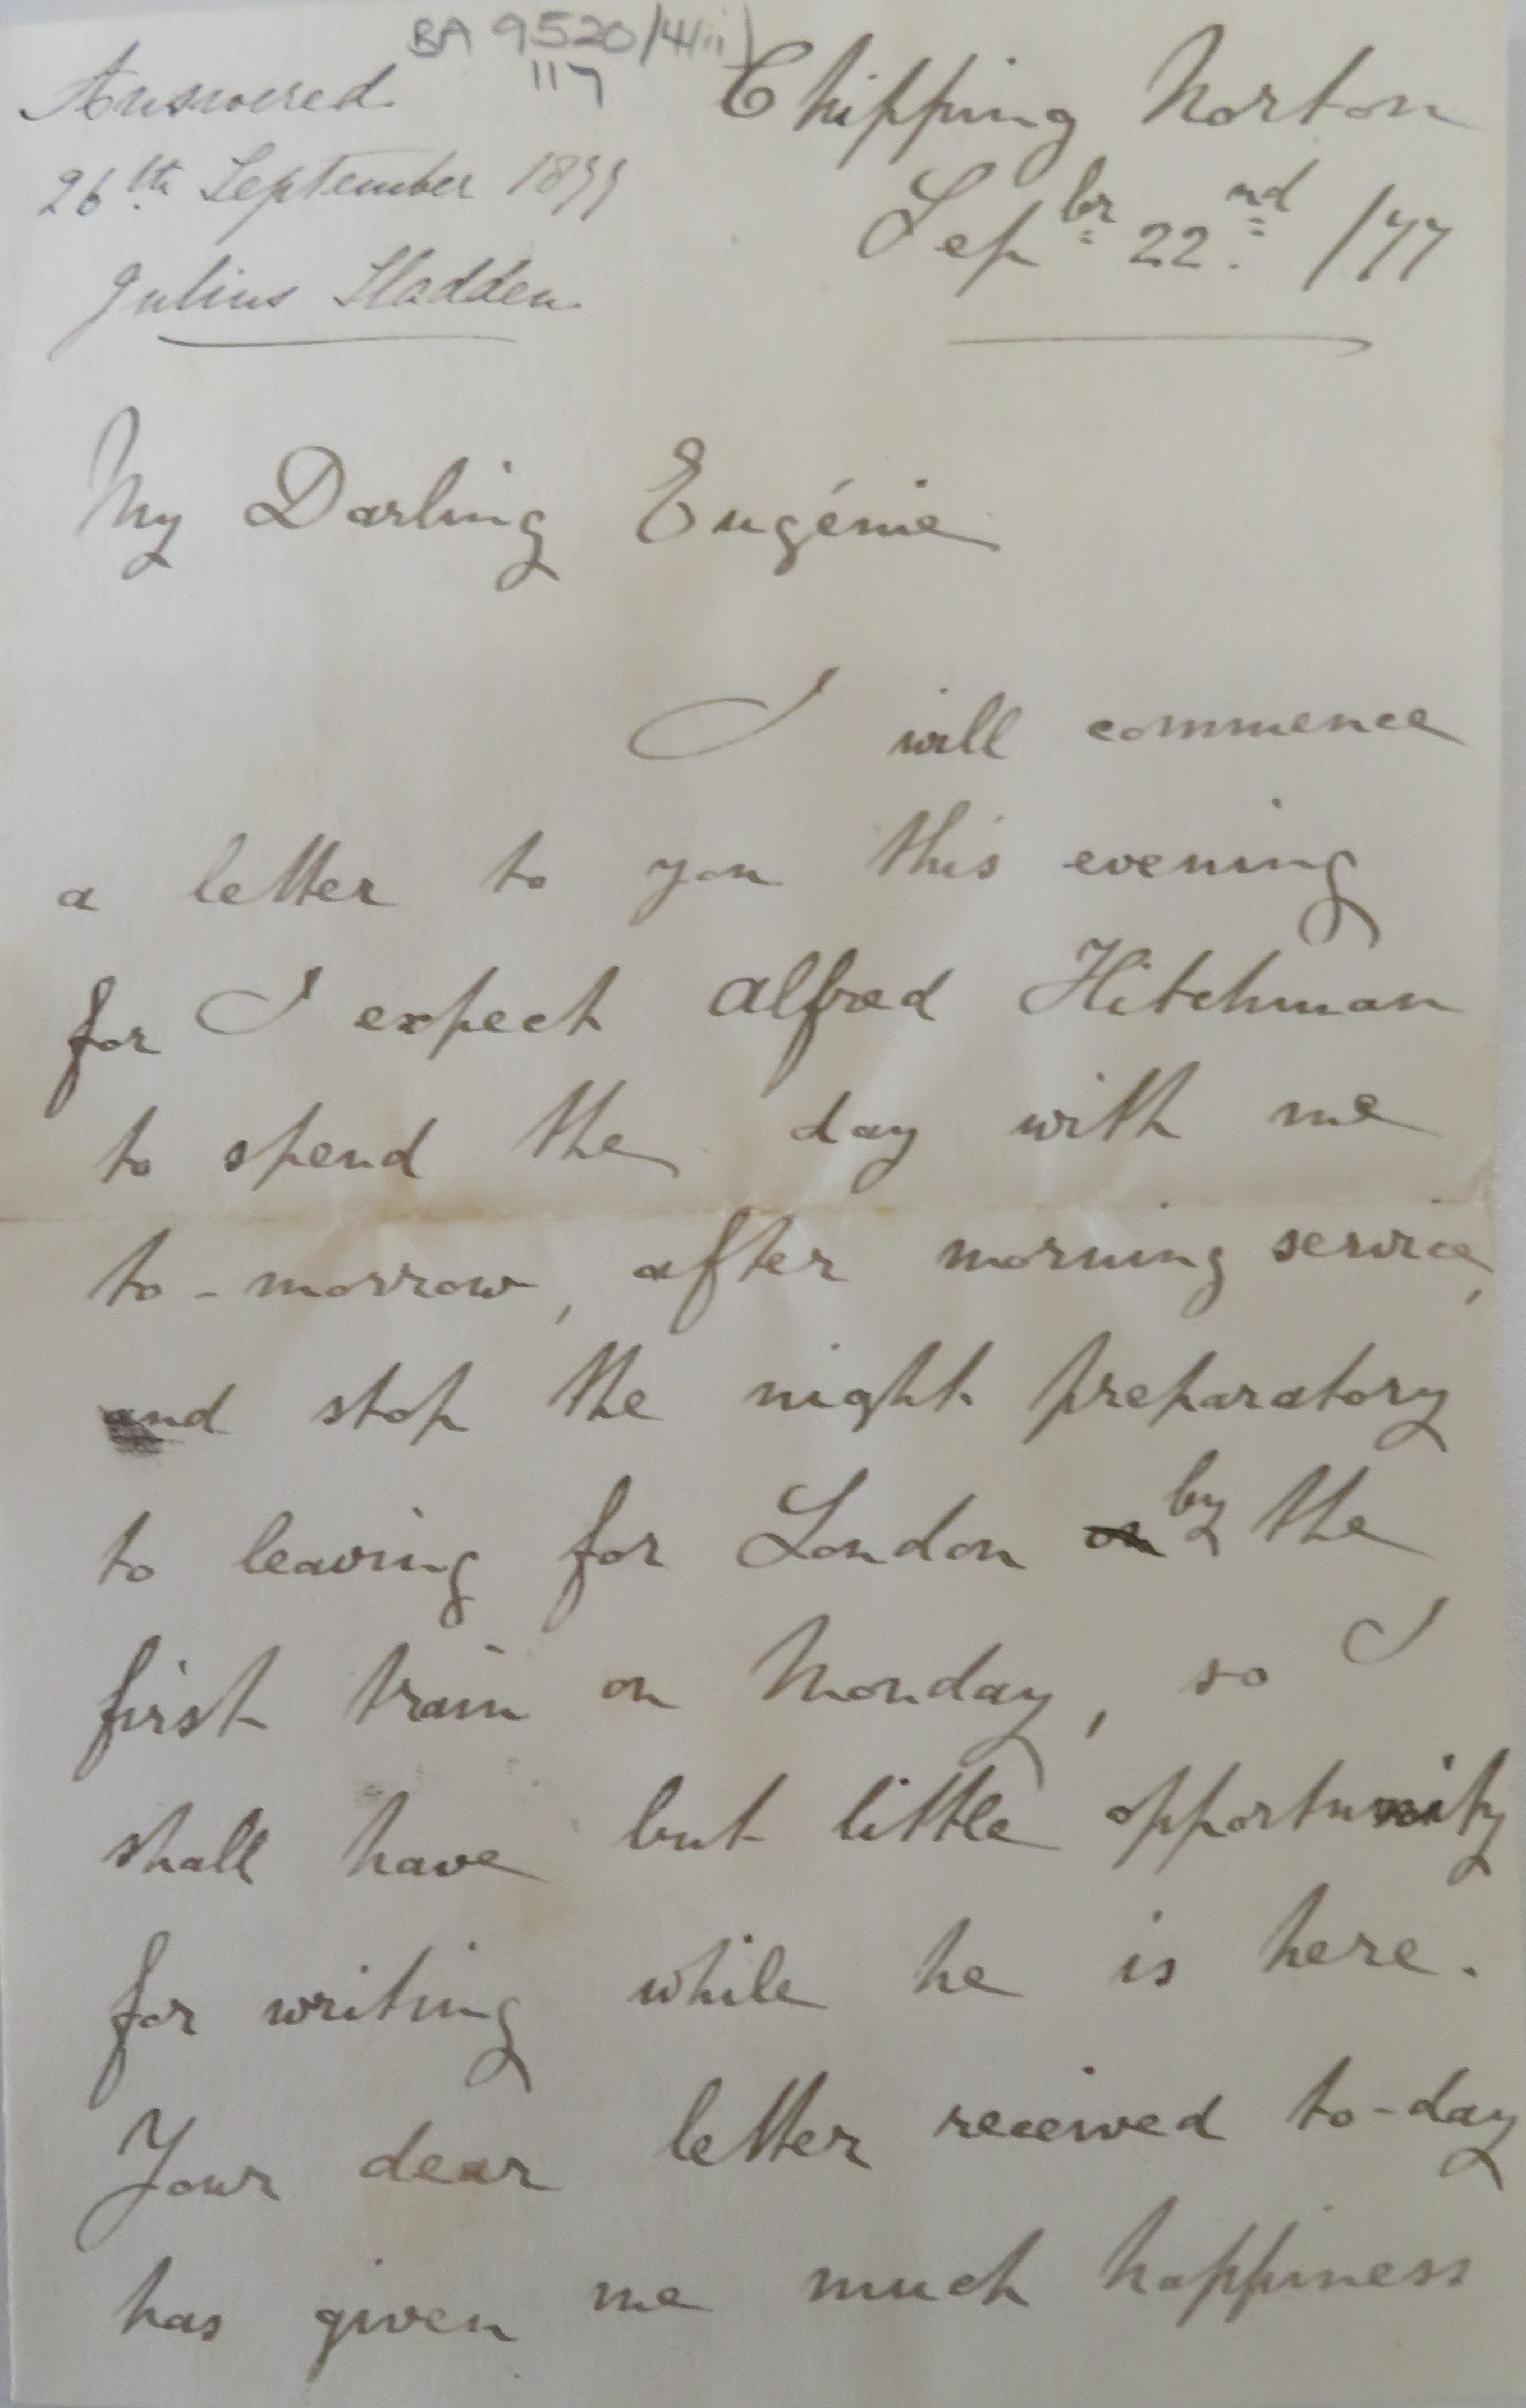 BA 9520/4/ii)
117
Answered
26th September 1877
Julius Sladden
Chipping Norton
Sepbr 22nd /77
My Darling Eugénie
I will commence
a letter to you this evening
for I expect Alfred Hitchman
to spend the day with me
to-morrow, after morning service,
and stop the night preparatory
to leaving for London on by the
first train on Monday, so I
shall have but little opportunity
for writing while he is here.
Your dear letter received to-day
has given me much happiness